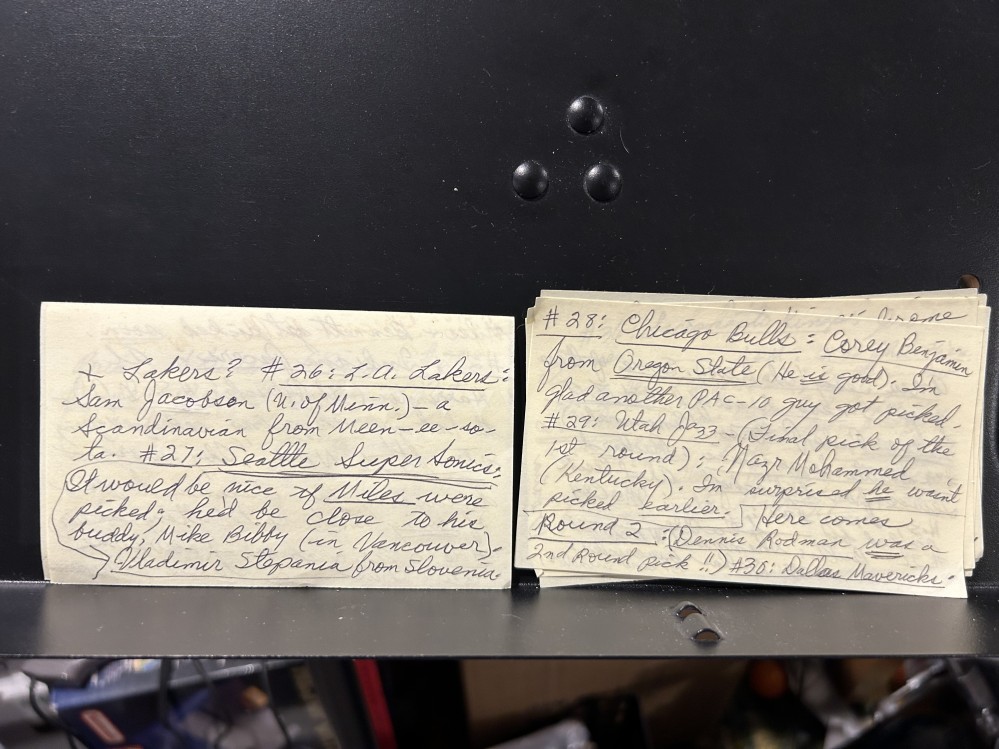 + Lakers? #26: L.A. Lakers:
Sam Jacobson (U. of Minn.) – a
Scandinavian from Meen-ee-so-
ta. #27: Seattle Super Sonics:
It would be nice if Miles were
picked; he'd be close to his
buddy, Mike Bibby (in Vancouver).
Vladimir Stepania from Slovenia.
#28: Chicago Bulls: Corey Benjamin
from Oregon State (He is good). I'm
glad another PAC-10 guy got picked.
#29: Utah Jazz – (Final pick of the
1st round): Nazr Mohammed
(Kentucky). I'm surprised he wasn't
picked earlier. Here comes
Round 2: (Dennis Rodman was a
2nd Round pick!!) #30: Dallas Mavericks: